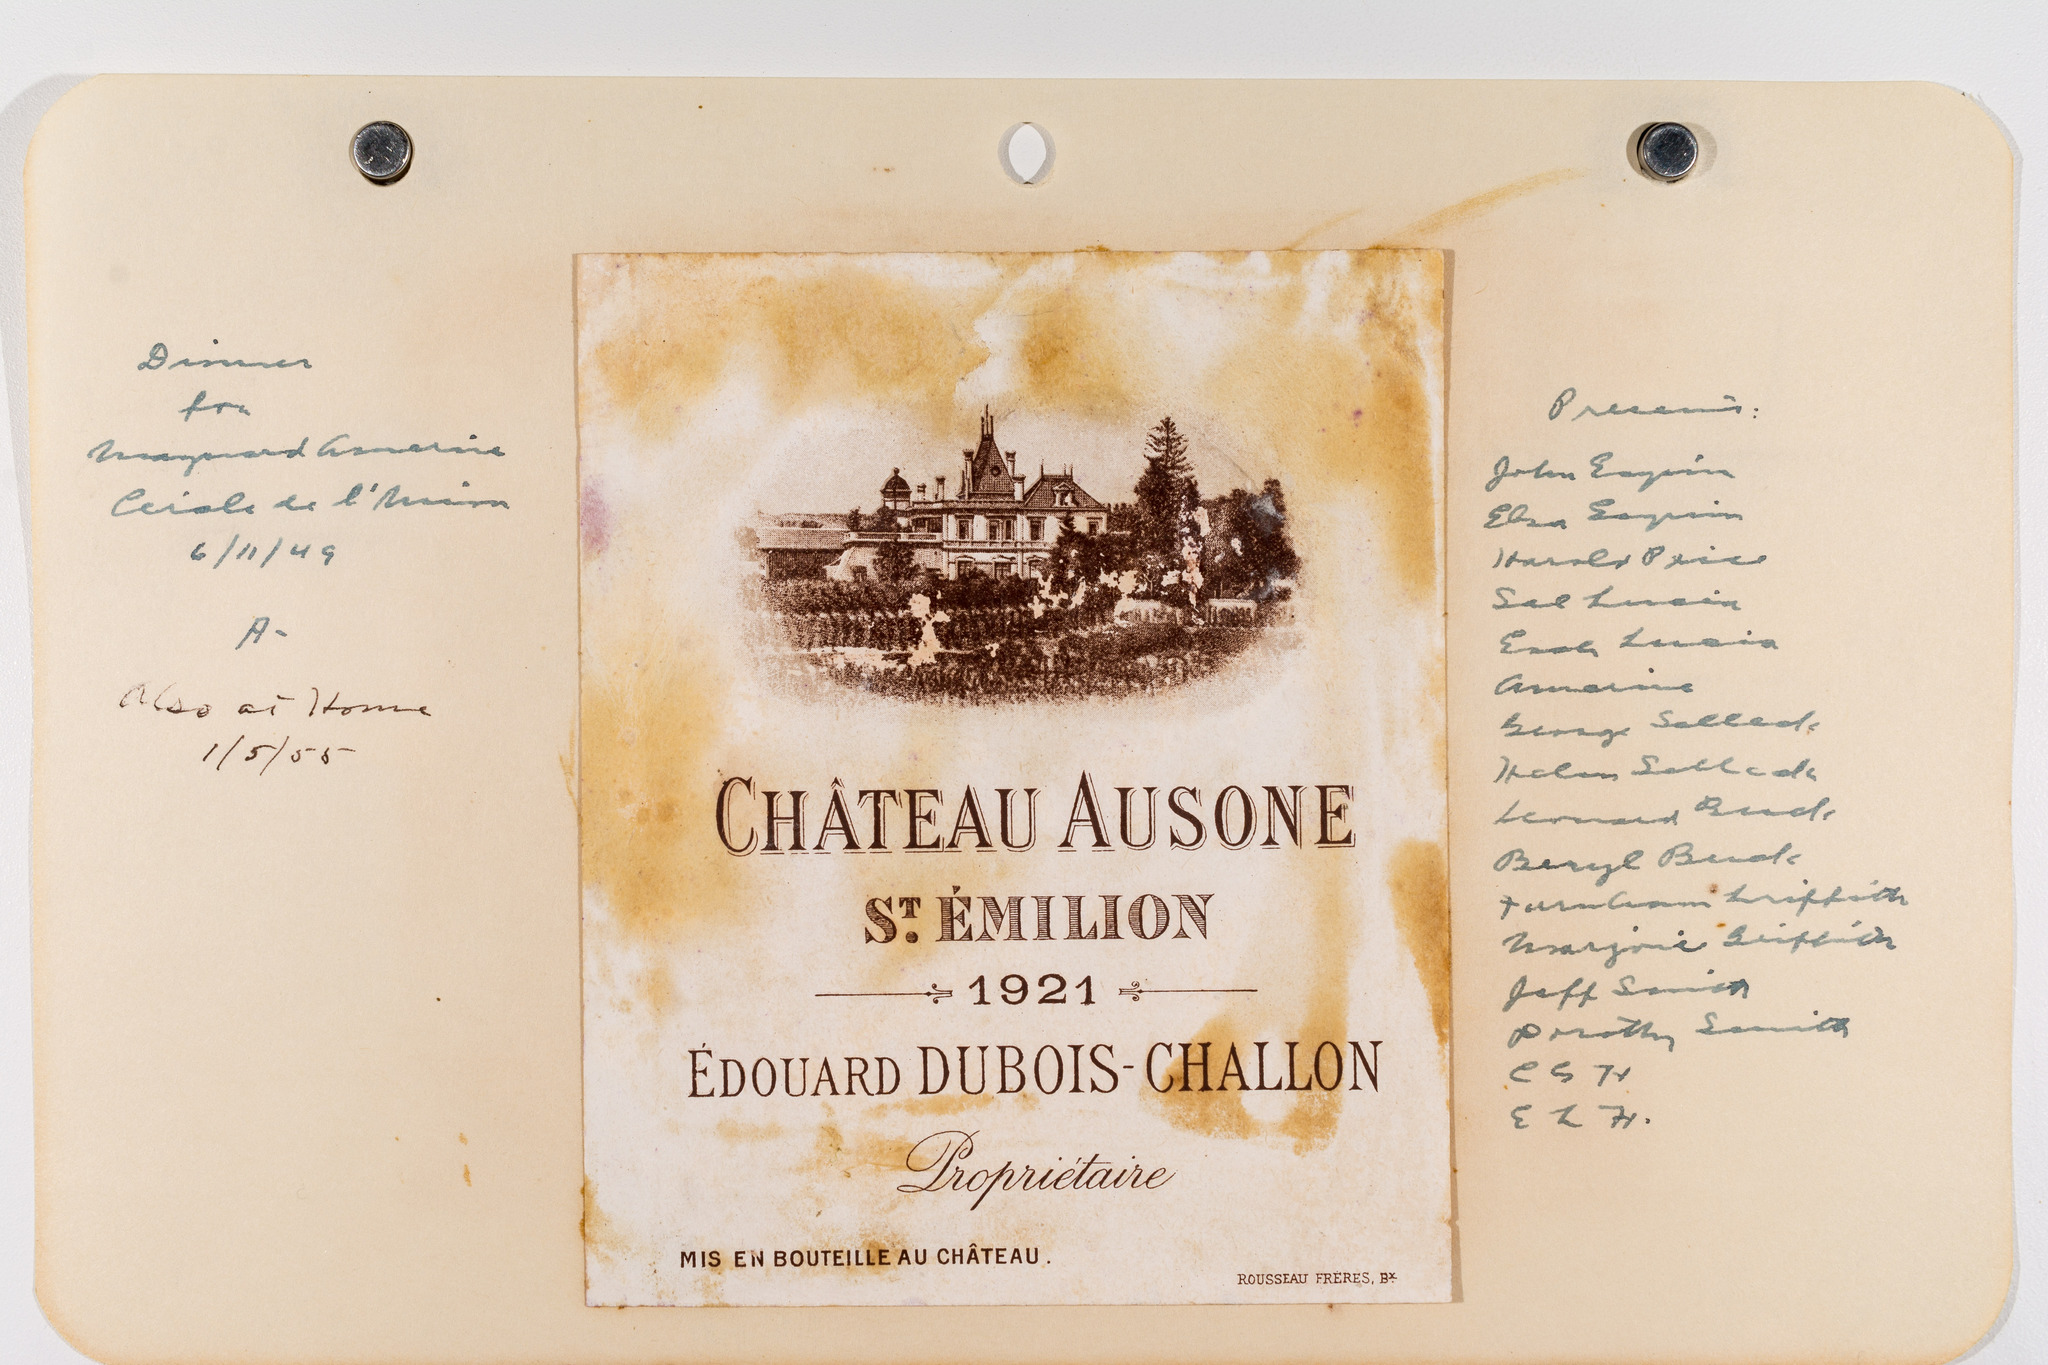 Dinner
for
Maynard Amerine
Cercle de l'Union
6/11/49
A-
Also at Home
1/5/55
CHÂTEAU AUSONE
ST. ÉMILION
1921
ÉDOUARD DUBOIS-CHALLON
Propriétaire
MIS EN BOUTEILLE AU CHÂTEAU.
ROUSSEAU FRÈRES, Bx
Present:
John Esquin
Elsa Esquin
Harold Price
Sal Lucia
Lucia
Amerine
George Selleck
Helen Selleck
Leonard Buck
Beryl Buck
Farnham Griffith
Marjorie Griffith
Jeff Smith
Dorothy Smith
C G H
E L H.